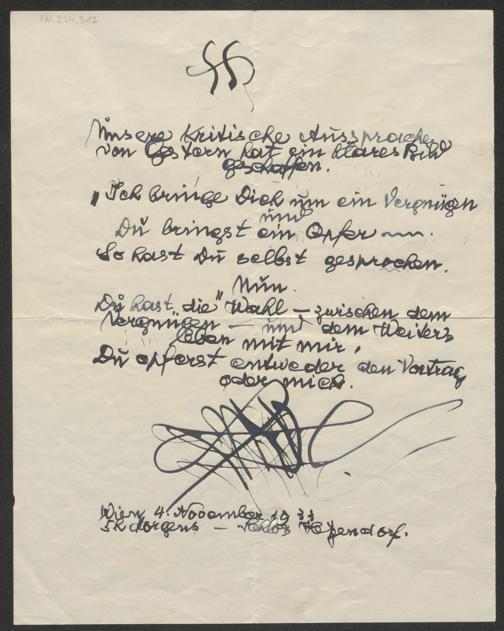 IN. 234.312
Unsere kritische Aussprache
von Gestern hat ein klares Bild
geschaffen.
„Ich bringe Dich um ein Vergnügen
und
Du bringst ein Opfer —.
So hast Du selbst gesprochen.
Nun.
Du hast „die" Wahl — zwischen dem
Vergnügen — und dem Weiters
leben mit mir,
Du opferst entweder den Vortrag
oder mich.
Wien 4. November 1933
5h Morgens — Schloß Hetzendorf.